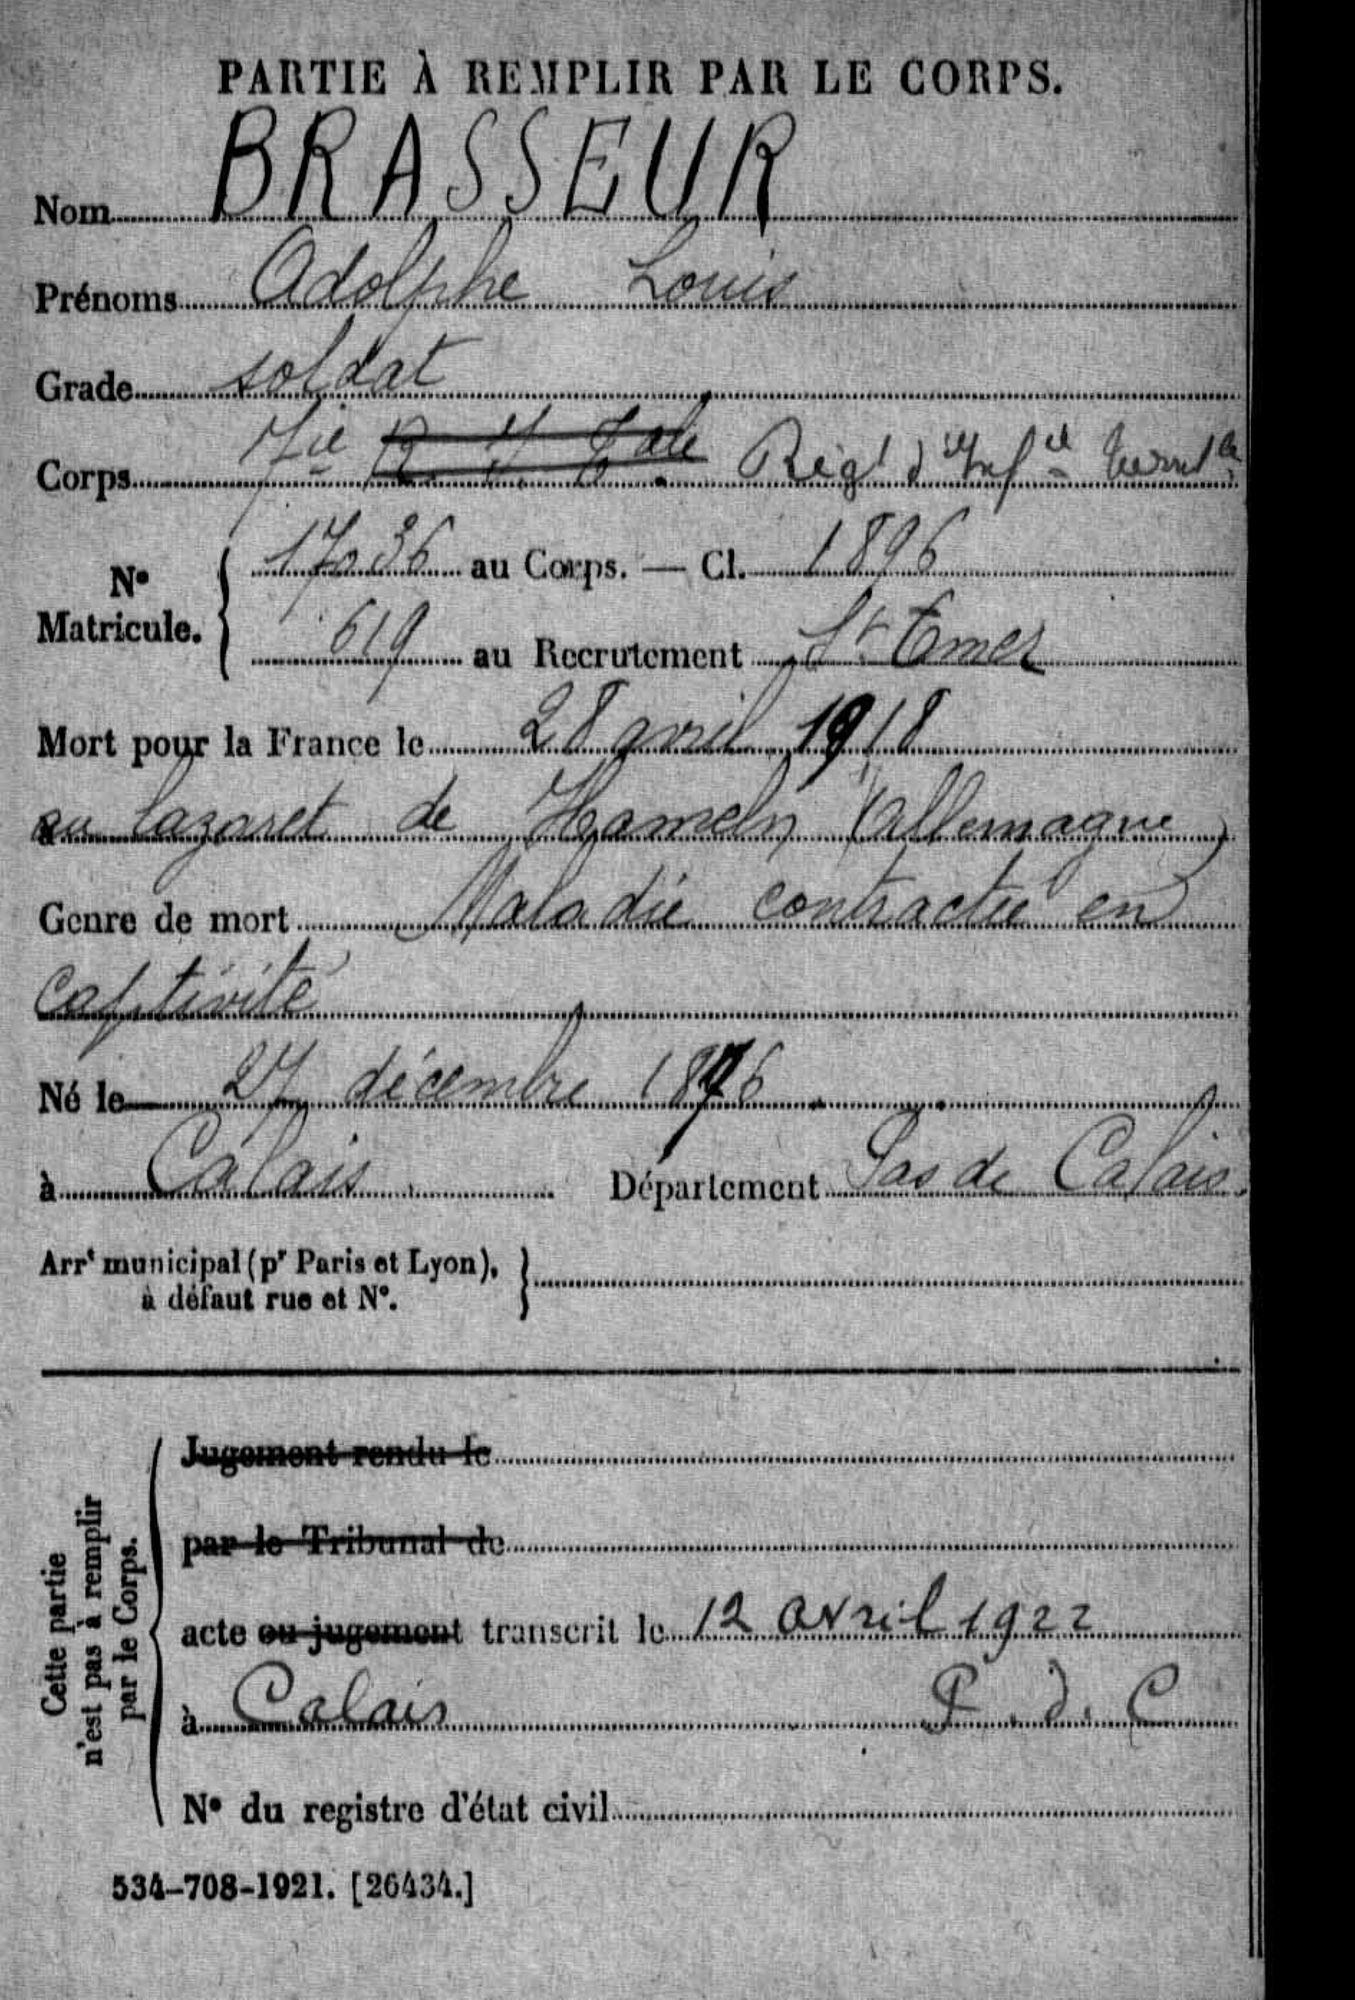 PARTIE À REMPLIR PAR LE CORPS.
Nom BRASSEUR
Prénoms Adolphe Louis
Grade soldat
Corps 7ie R. I. Tale Régt d'Infie Terrle
N° Matricule. 17036 au Corps. — Cl. 1896
619 au Recrutement St Omer
Mort pour la France le 28 avril 1918
au lazaret de Hameln (Allemagne)
Genre de mort Maladie contractée en
captivité
Né le 27 décembre 1876
à Calais Département Pas de Calais.
Arrt municipal (pr Paris et Lyon),
à défaut rue et N°.
Cette partie
n'est pas à remplir
par le Corps.
Jugement rendu le
par le Tribunal de
acte ou jugement transcrit le 12 avril 1922
à Calais P. d. C
N° du registre d'état civil
534-708-1921. [26434.]